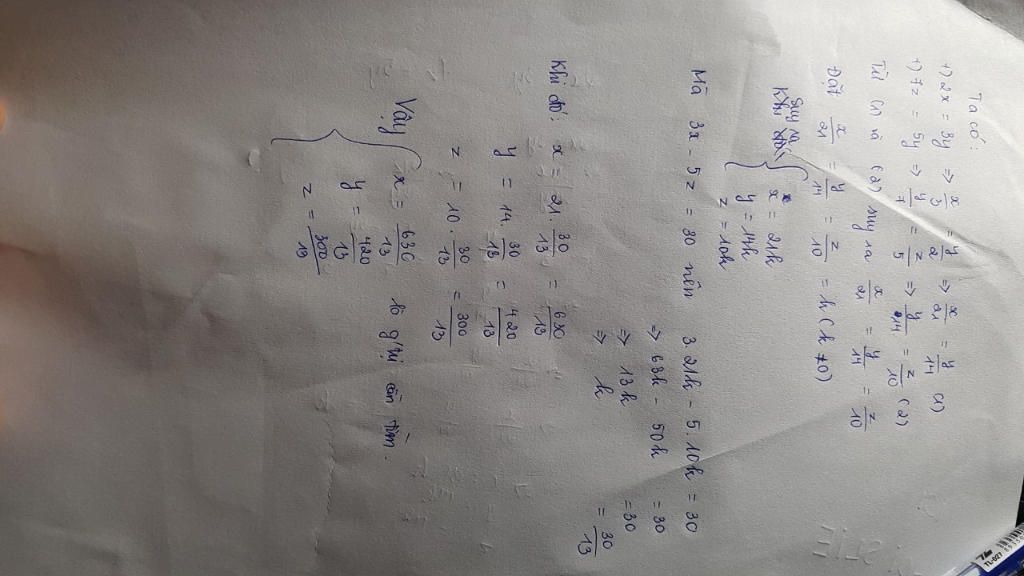 Ta có:
+) 2x = 3y => x/3 = y/2 => x/21 = y/14 (1)
+) 7z = 5y => y/7 = z/5 => y/14 = z/10 (2)
Từ (1) và (2) suy ra x/21 = y/14 = z/10
Đặt x/21 = y/14 = z/10 = k (k ≠ 0)
Suy ra { x = 21k
y = 14k
z = 10k
Mà 3x - 5z = 30 nên 3.21k - 5.10k = 30
=> 63k - 50k = 30
=> 13k = 30
=> k = 30/13
Khi đó: x = 21. 30/13 = 630/13
y = 14. 30/13 = 420/13
z = 10. 30/13 = 300/13
Vậy { x = 630/13
y = 420/13
z = 300/13
là g'trị cần tìm.
TL-027